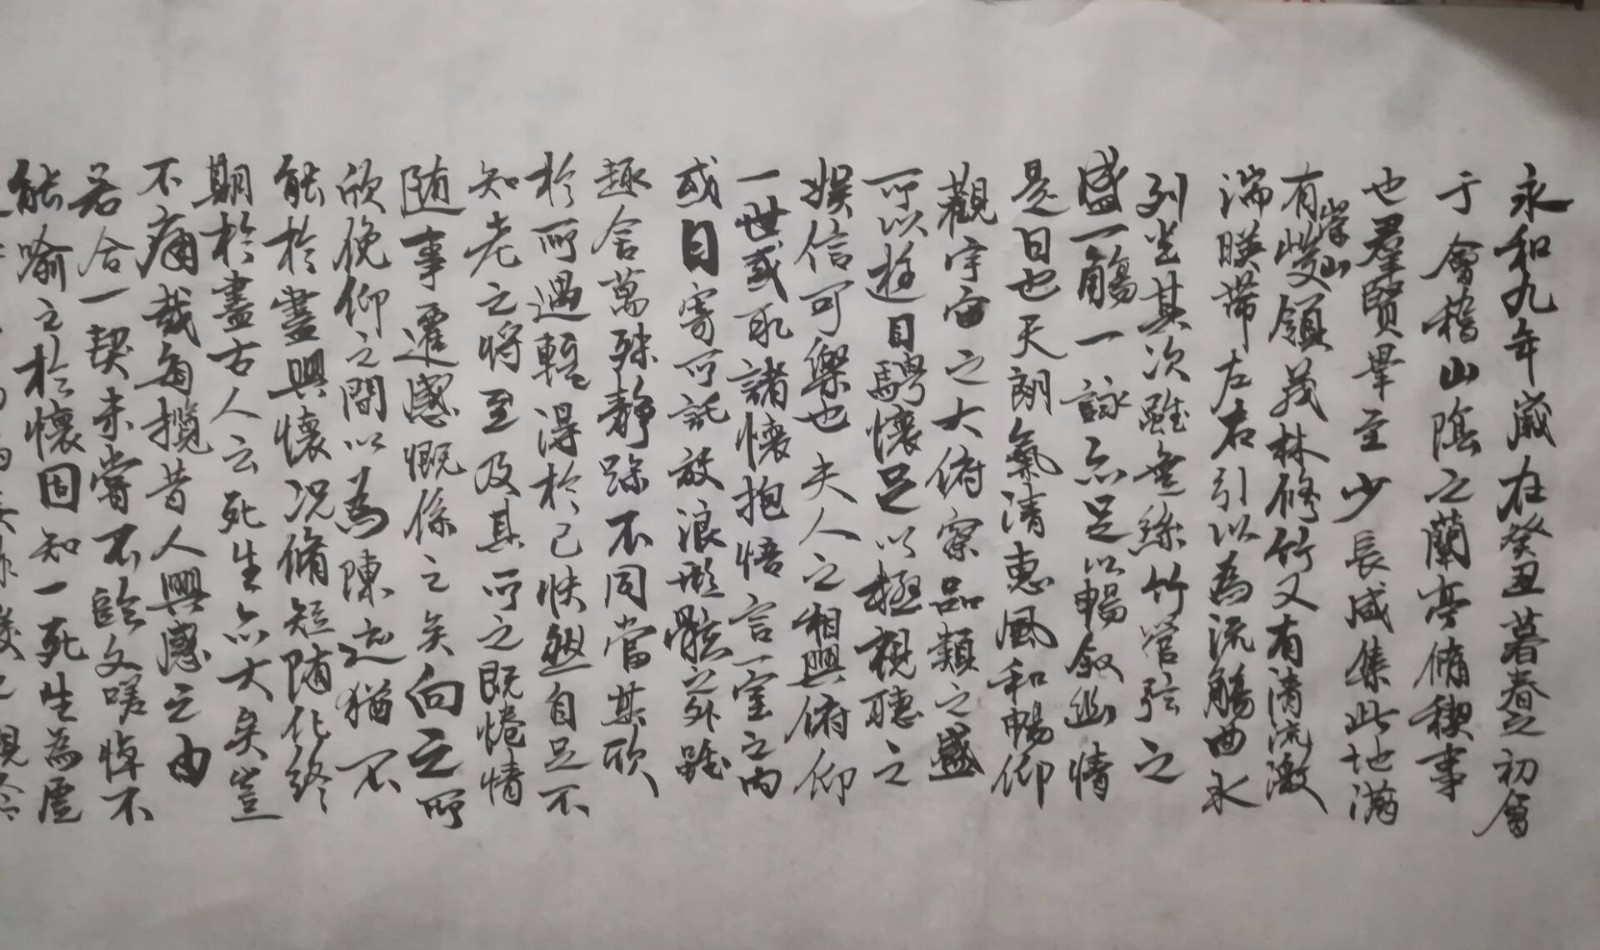 永和九年歲在癸丑暮春之初會
于會稽山陰之蘭亭脩稧事
也羣賢畢至少長咸集此地
有崇山峻領茂林脩竹又有清流激
湍暎帶左右引以為流觴曲水
列坐其次雖無絲竹管弦之
盛一觴一詠亦足以暢叙幽情
是日也天朗氣清惠風和暢仰
觀宇宙之大俯察品類之盛
所以遊目騁懷足以極視聽之
娛信可樂也夫人之相與俯仰
一世或取諸懷抱悟言一室之內
或因寄所託放浪形骸之外雖
趣舍萬殊靜躁不同當其欣
於所遇暫得於己怏然自足不
知老之將至及其所之既惓情
随事遷感慨係之矣向之所
欣俛仰之間以為陳迹猶不
能於盡興懷况脩短随化終
期於盡古人云死生亦大矣豈
不痛哉每攬昔人興感之由
若合一契未嘗不臨文嗟悼不
能喻之於懷固知一死生為虛